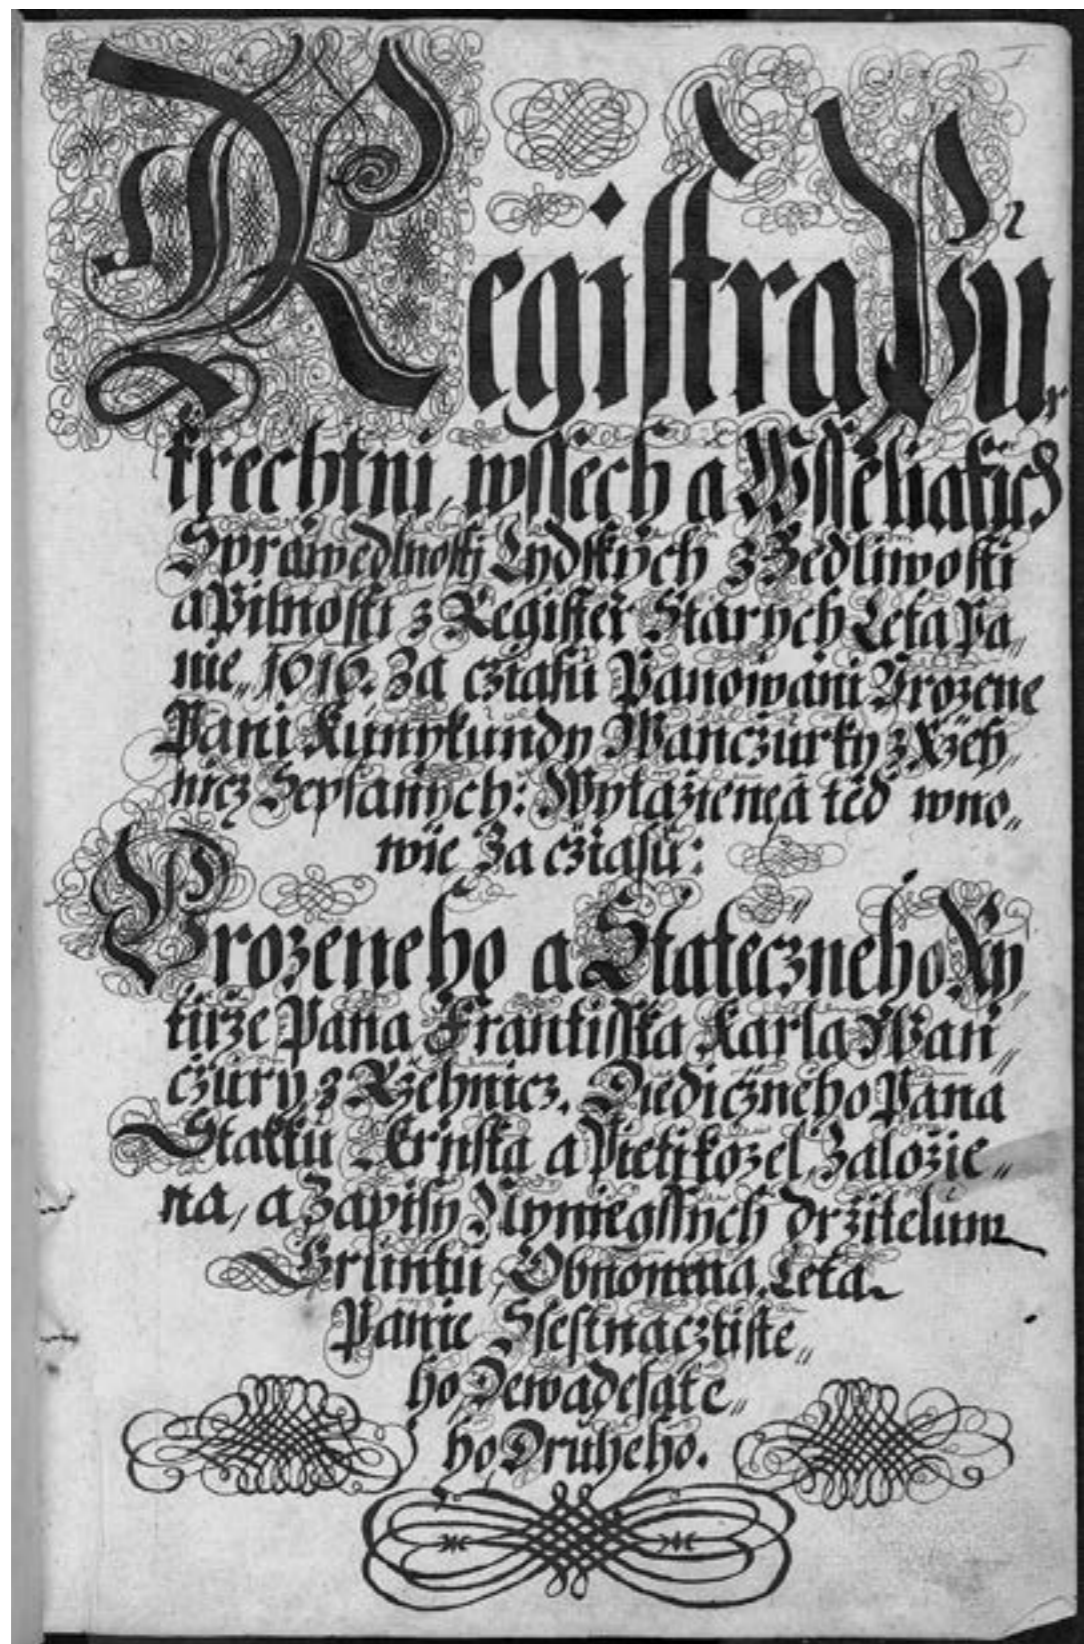 Registra Pu
rkrechtni, wssech a Wsseliakich
Sprawedlnosti Lydskych z Bedliwosti
a Pilnosti z Register Starych Leta Pa„
nie„ 1616. Za cziasu Panowani Urozene
Pani Kunykundy Wanczurky z Rzeh„
nicz Sepsanych: Wytazienea ted wno„
wie Za cziasu:
Urozeneho a Stateczneho Ry„
tirze Pana Frantisska Karla Wan„
czury z Rzehnicz. Diediczneho Pana
Statku Ernsta a Pietikozel, Zalozie„
na, a Zapisy Nyniegssych drzitelum
Gruntu, Obnowena, Leta
Panie Ssestnacztiste„
ho Dewadesate„
ho Druheho.